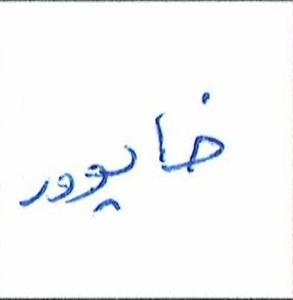 خاپوور